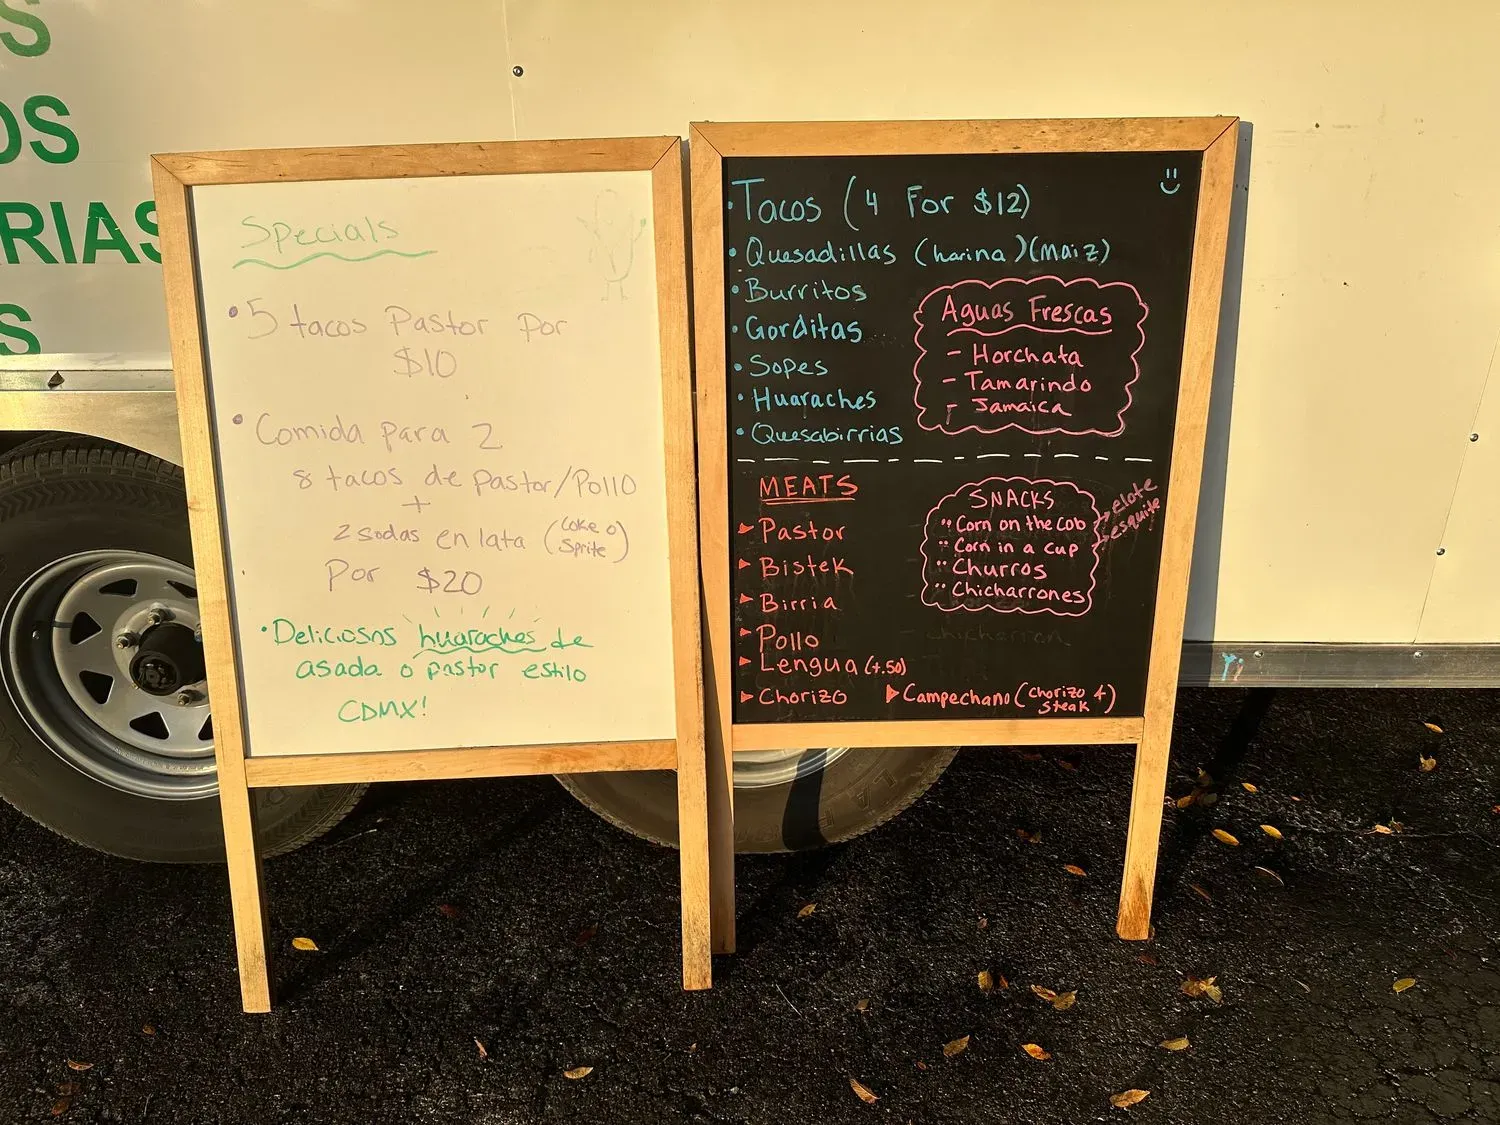 S
OS
RIAS
S
Specials
• 5 tacos Pastor Por
$10
• Comida para 2
8 tacos de pastor/Pollo
+
2 sodas en lata (Coke o
Sprite)
Por $20
• Deliciosos huaraches de
asada o pastor estilo
CDMX!
• Tacos (4 For $12)
• Quesadillas (harina)(Maiz)
• Burritos
• Gorditas
• Sopes
• Huaraches
• Quesabirrias
Aguas Frescas
- Horchata
- Tamarindo
- Jamaica
MEATS
Pastor
Bistek
Birria
Pollo
Lengua (+.50)
Chorizo
Campechano (Chorizo +
Steak)
SNACKS
Corn on the cob
Corn in a cup
Churros
Chicharrones
elote
esquite